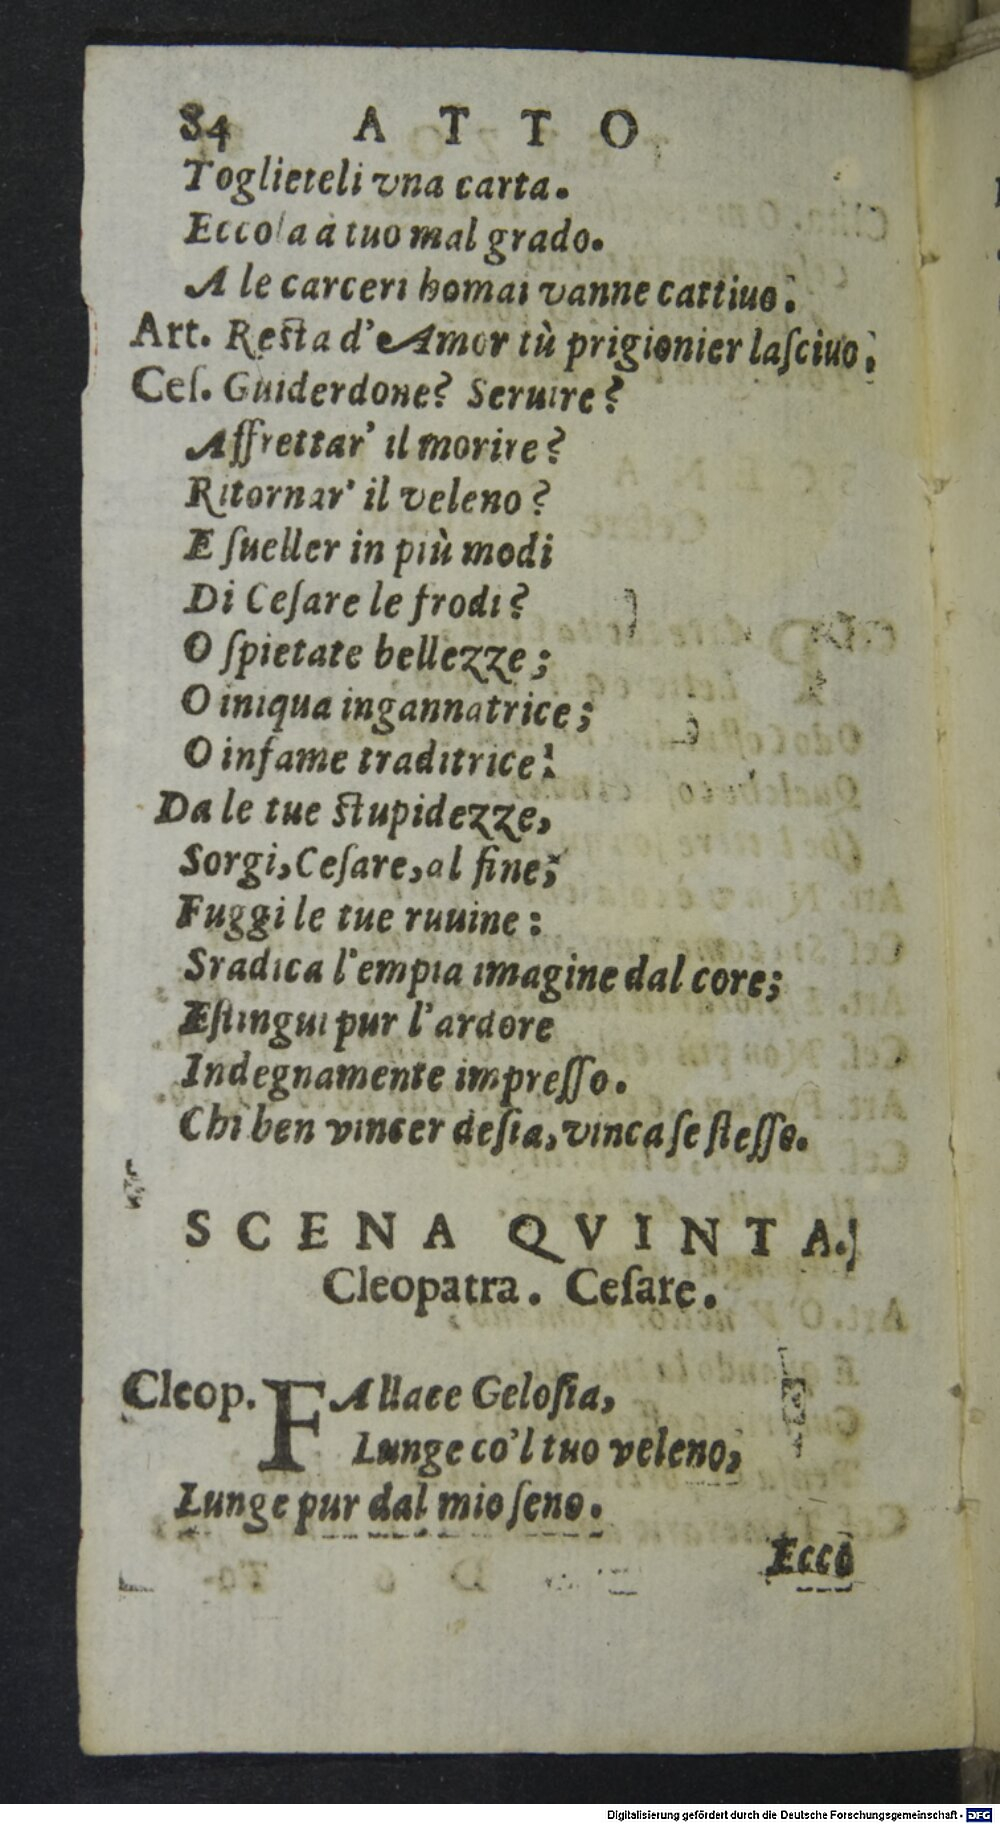 84 ATTO
Toglieteli vna carta.
Eccola à tuo mal grado.
A le carceri homai vanne cattiuo.
Art. Resta d'Amor tù prigionier lasciuo.
Ceſ. Guiderdone? Seruire?
Affrettar' il morire?
Ritornar' il veleno?
E ſueller in più modi
Di Ceſare le frodi?
O ſpietate bellezze;
O iniqua ingannatrice;
O infame traditrice!
Da le tue stupidezze,
Sorgi, Ceſare, al fine;
Fuggi le tue ruuine:
Sradica l'empia imagine dal core;
Eſtingui pur l'ardore
Indegnamente impreſſo.
Chi ben vincer deſia, vinca ſe ſteſſo.
SCENA QVINTA.
Cleopatra. Ceſare.
Cleop. FAllace Geloſia,
Lunge co'l tuo veleno,
Lunge pur dal mio ſeno.
Ecco
Digitalisierung gefördert durch die Deutsche Forschungsgemeinschaft - DFG